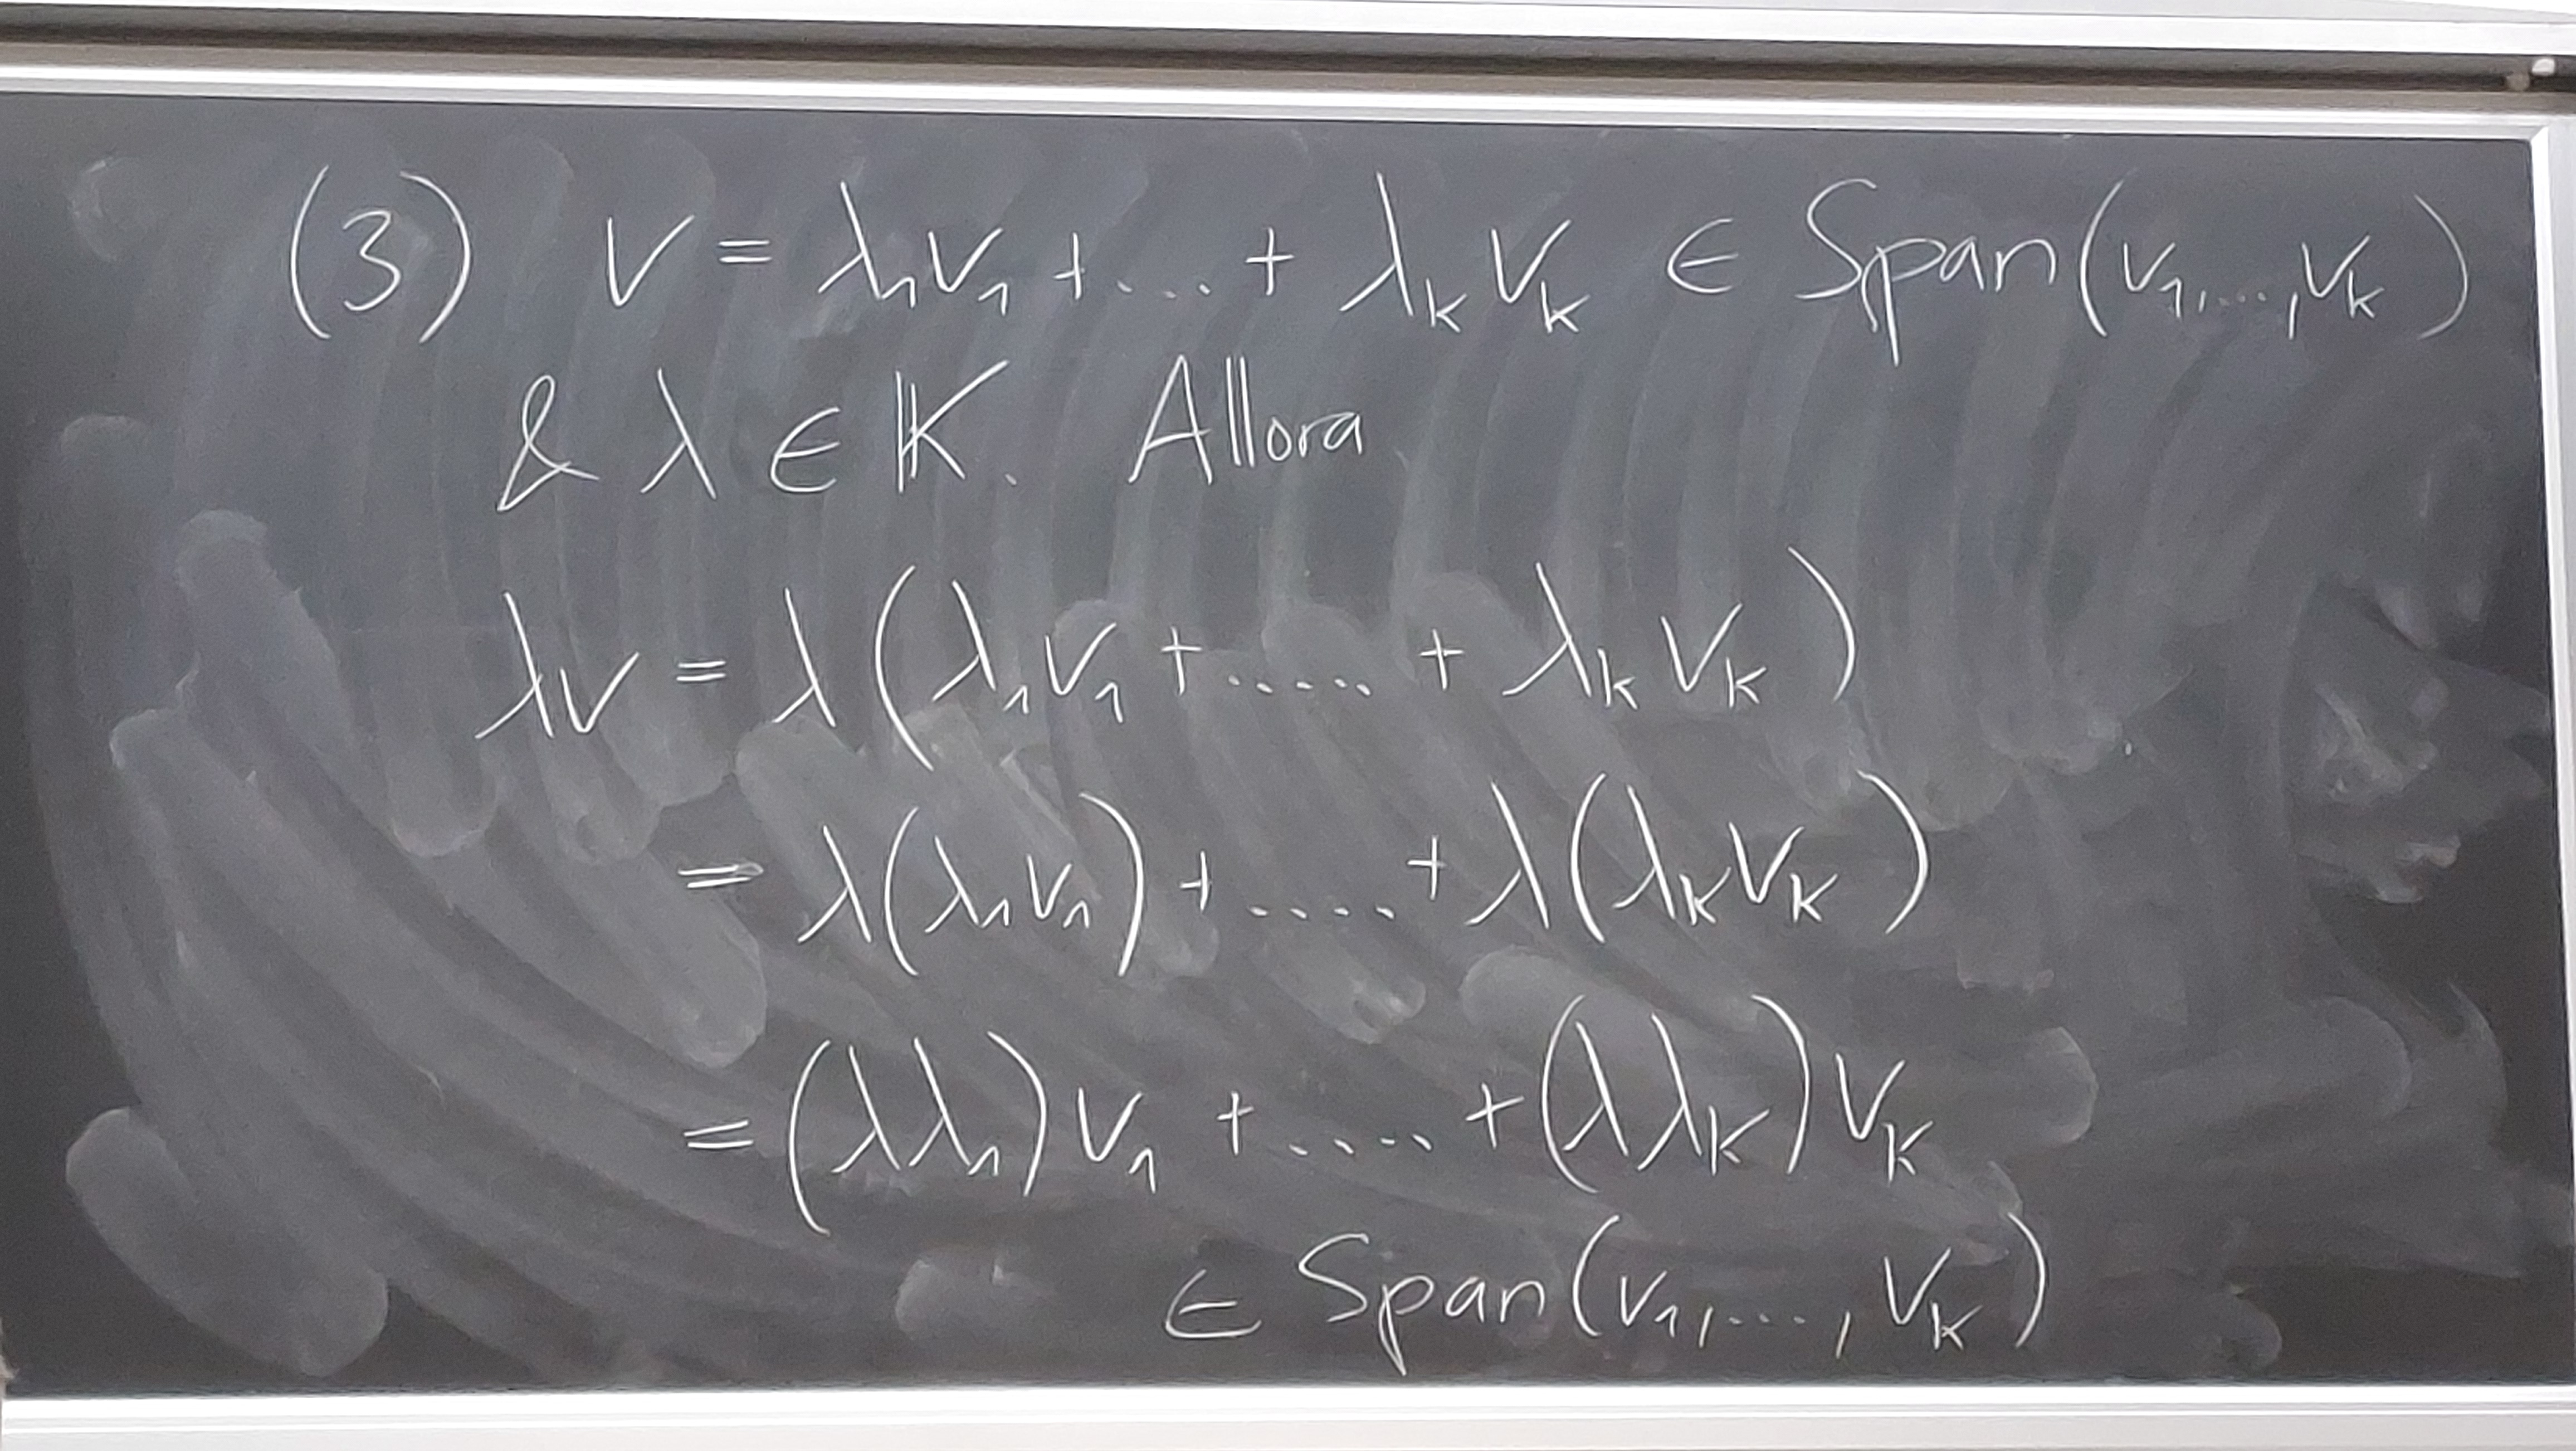 (3) v = λ₁v₁ + ... + λₖvₖ ∈ Span(v₁,...,vₖ)
& λ ∈ 𝕂. Allora
λv = λ(λ₁v₁ + ..... + λₖvₖ)
= λ(λ₁v₁) + ..... + λ(λₖvₖ)
= (λλ₁)v₁ + ..... + (λλₖ)vₖ
∈ Span(v₁,....,vₖ)